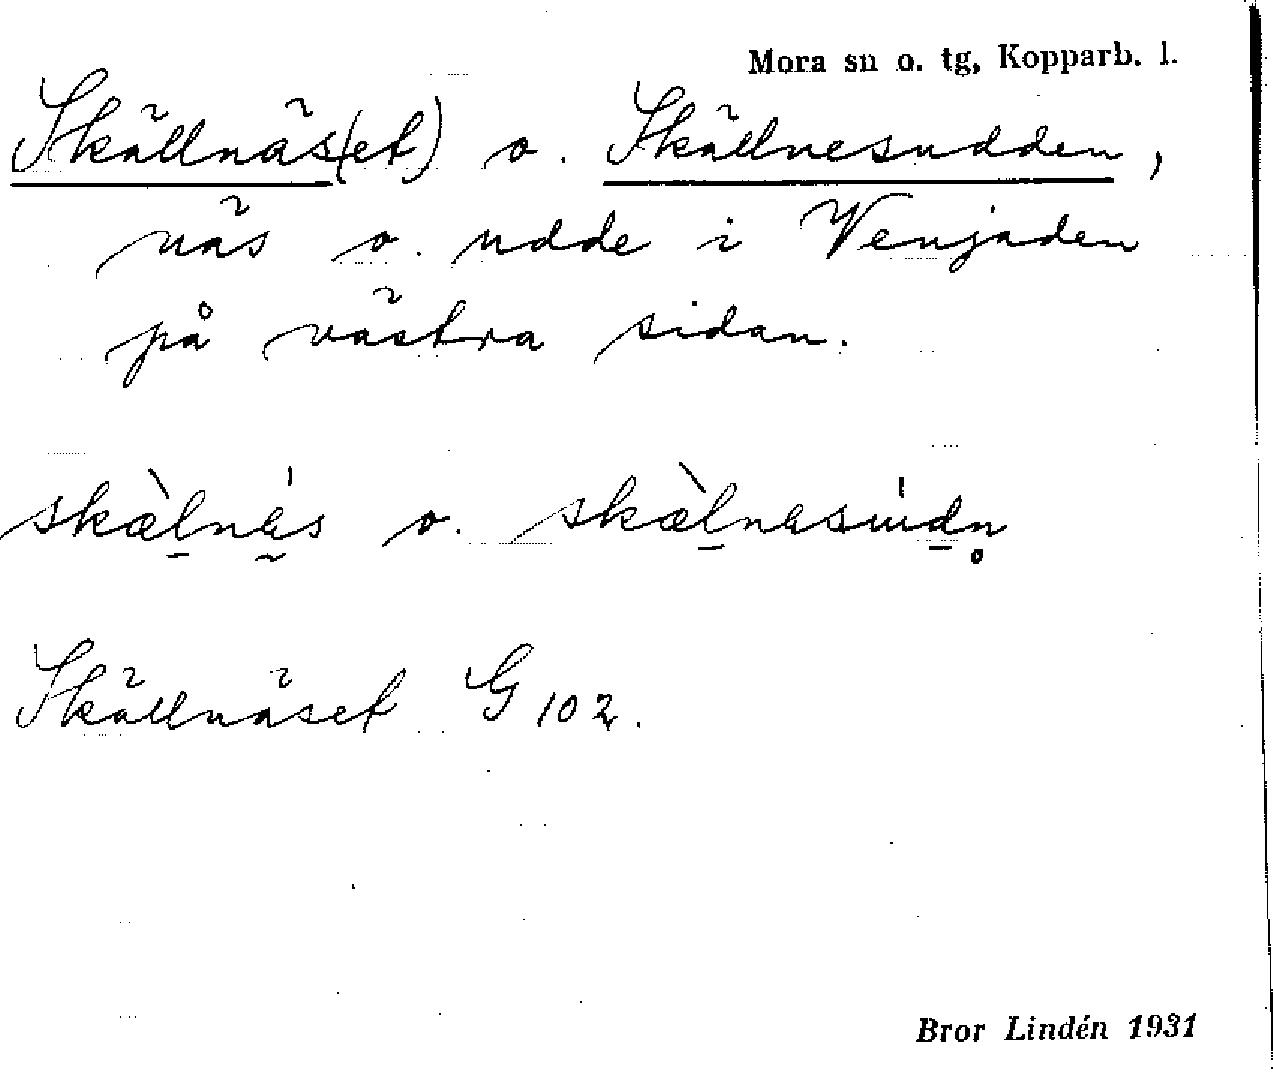 Mora sn o. tg, Kopparb. l.
Skällnäs(et) o. Skällnesudden,
näs o. udde i Venjaden
på västra sidan.
skæ̀lnás o. 
Skällnäset G 102.
Bror Lindén 1931